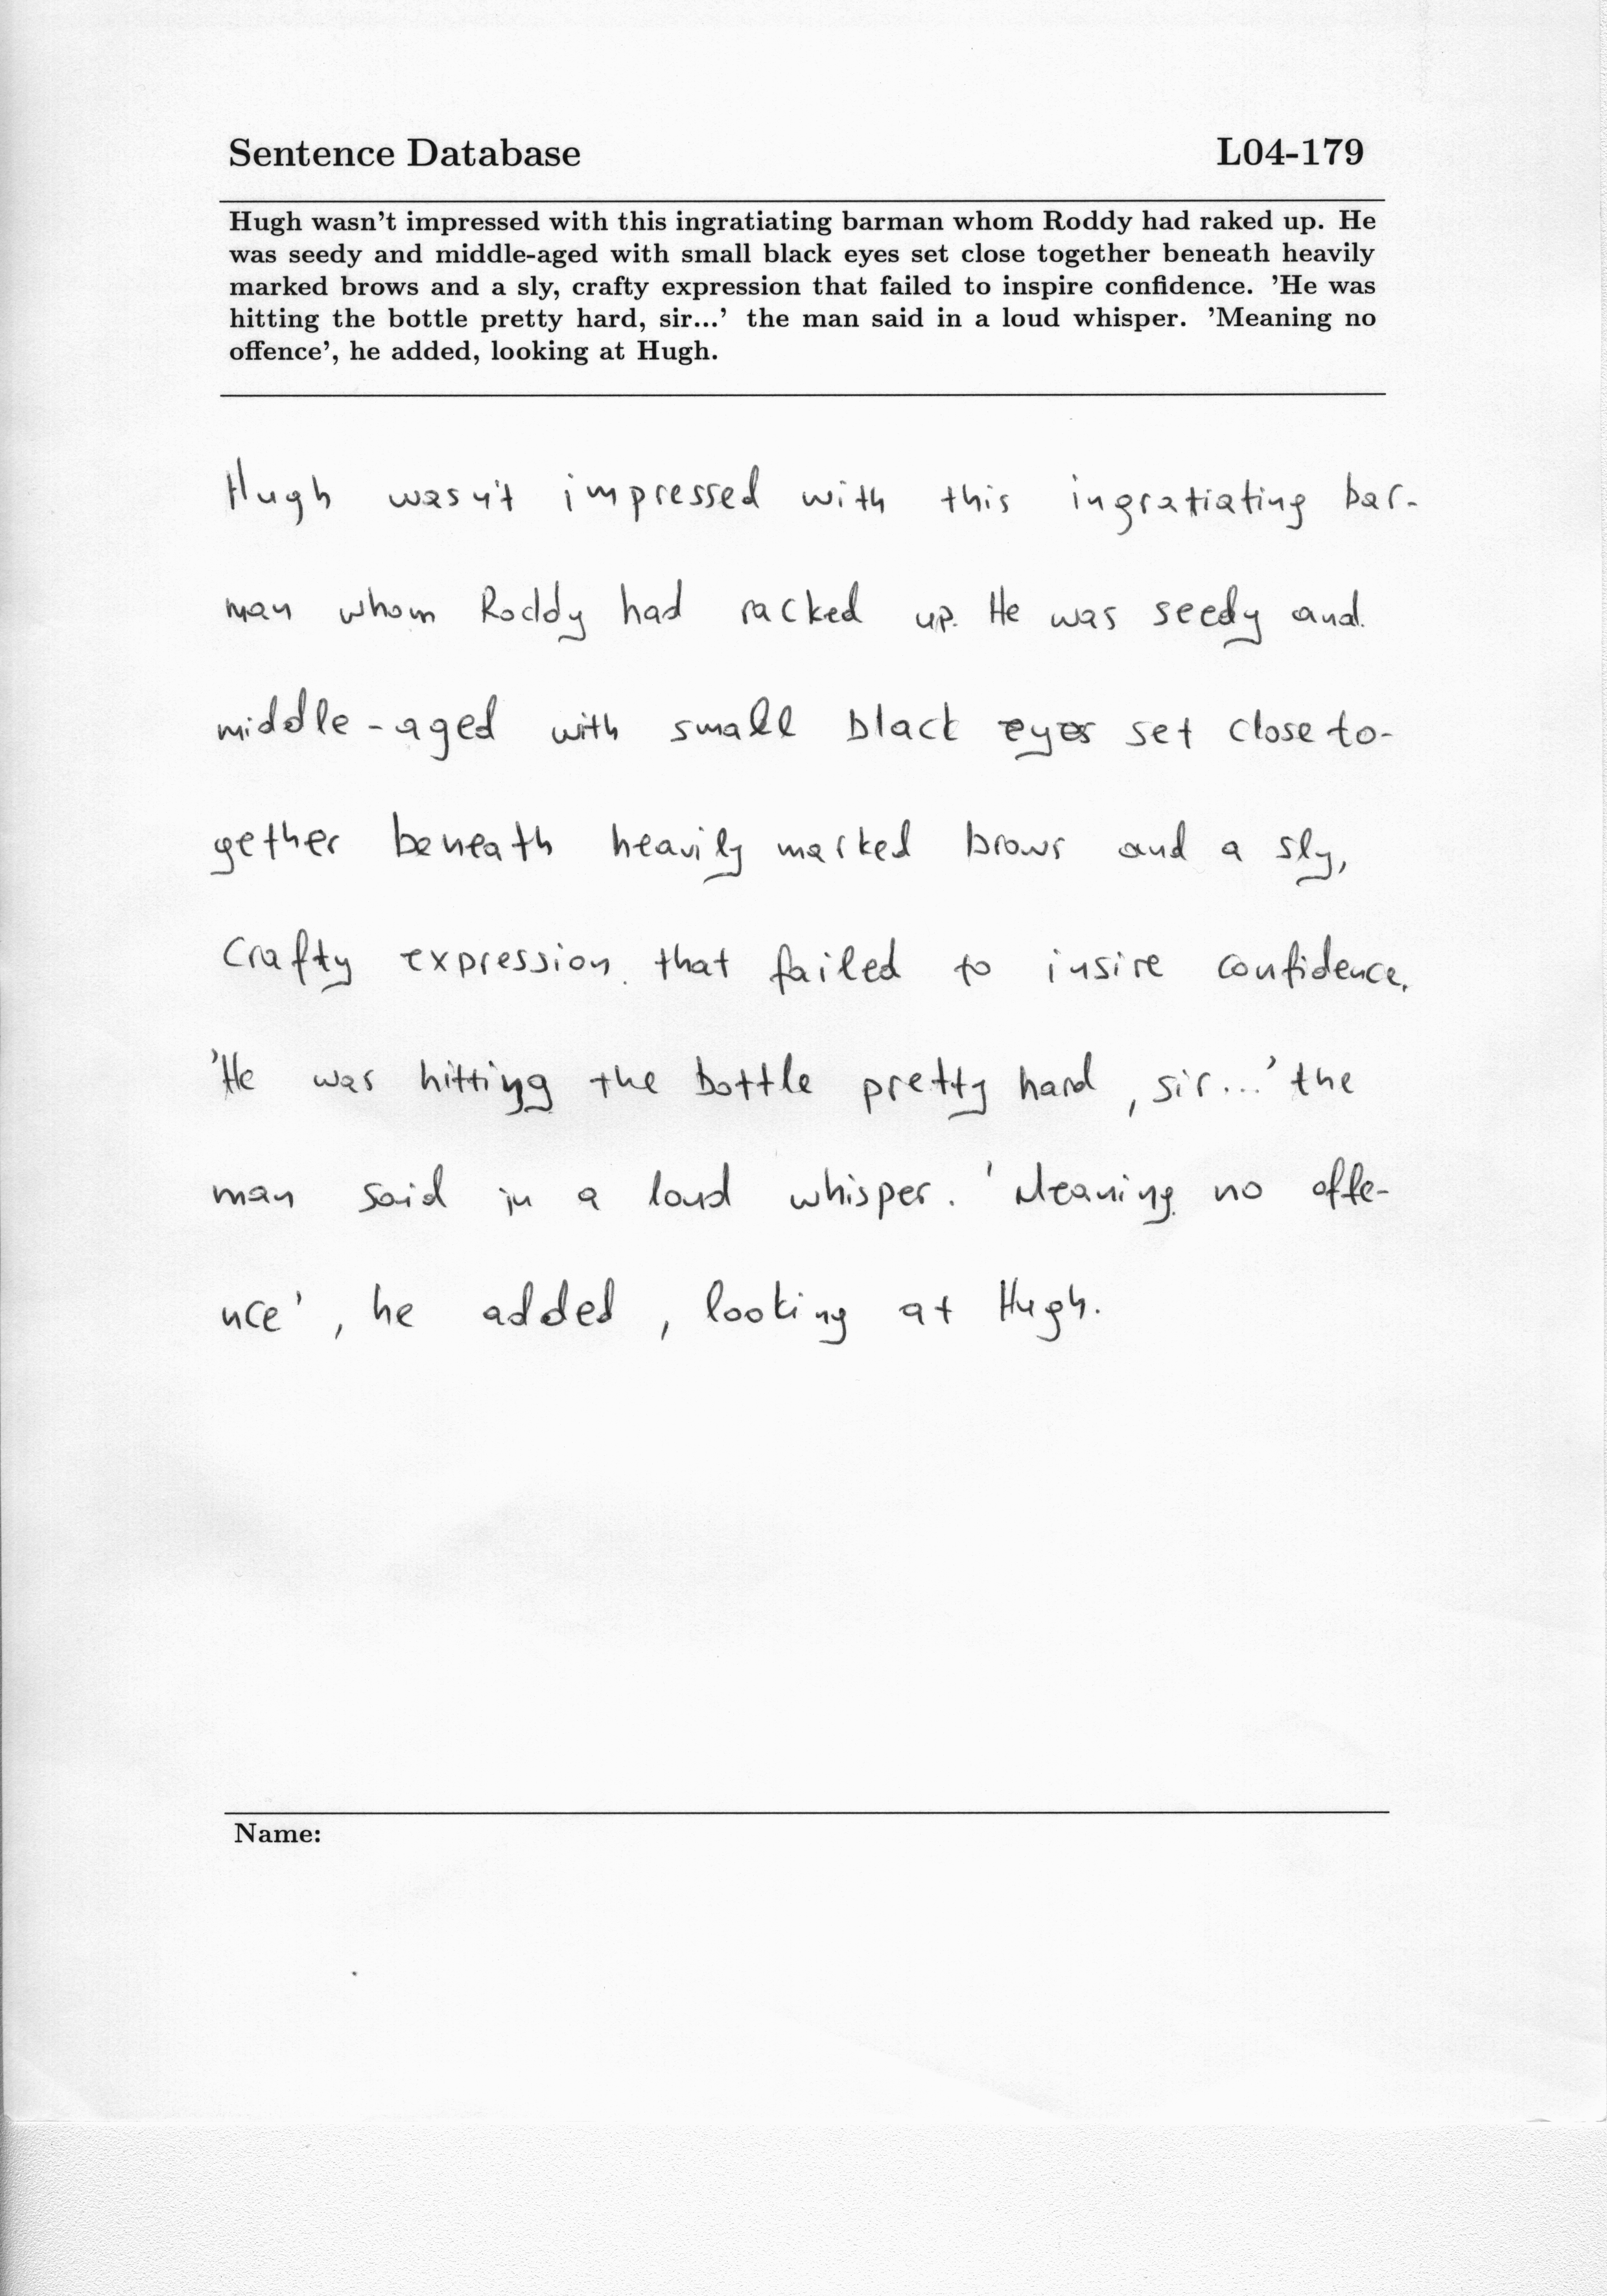 Sentence Database L04-179
Hugh wasn't impressed with this ingratiating barman whom Roddy had raked up. He
was seedy and middle-aged with small black eyes set close together beneath heavily
marked brows and a sly, crafty expression that failed to inspire confidence. 'He was
hitting the bottle pretty hard, sir...' the man said in a loud whisper. 'Meaning no
offence', he added, looking at Hugh.
Hugh wasn't impressed with this ingratiating bar-
man whom Roddy had racked up. He was seedy and
middle-aged with small black eyes set close to-
gether beneath heavily marked brows and a sly,
crafty expression that failed to insire confidence.
'He was hitting the bottle pretty hard, sir...' the
man said in a loud whisper. 'Meaning no offe-
nce', he added, looking at Hugh.
Name: